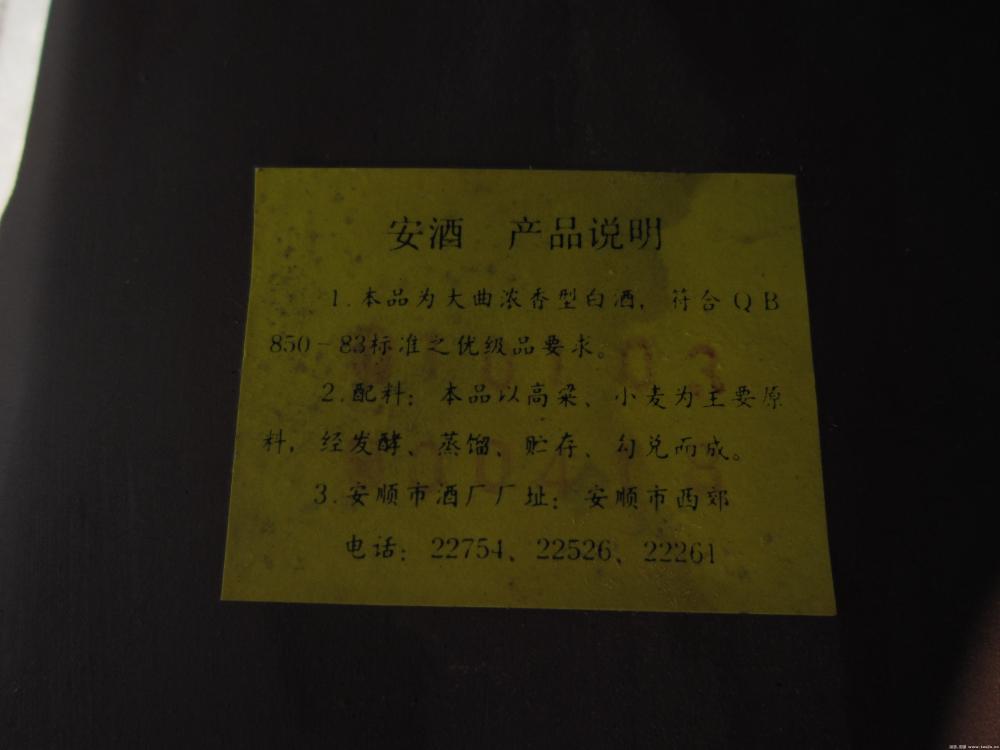 安酒 产品说明
1.本品为大曲浓香型白酒，符合QB
850-83标准之优级品要求。
2.配料：本品以高粱、小麦为主要原
料，经发酵、蒸馏、贮存、勾兑而成。
3.安顺市酒厂厂址：安顺市西郊
电话：22754、22526、22261